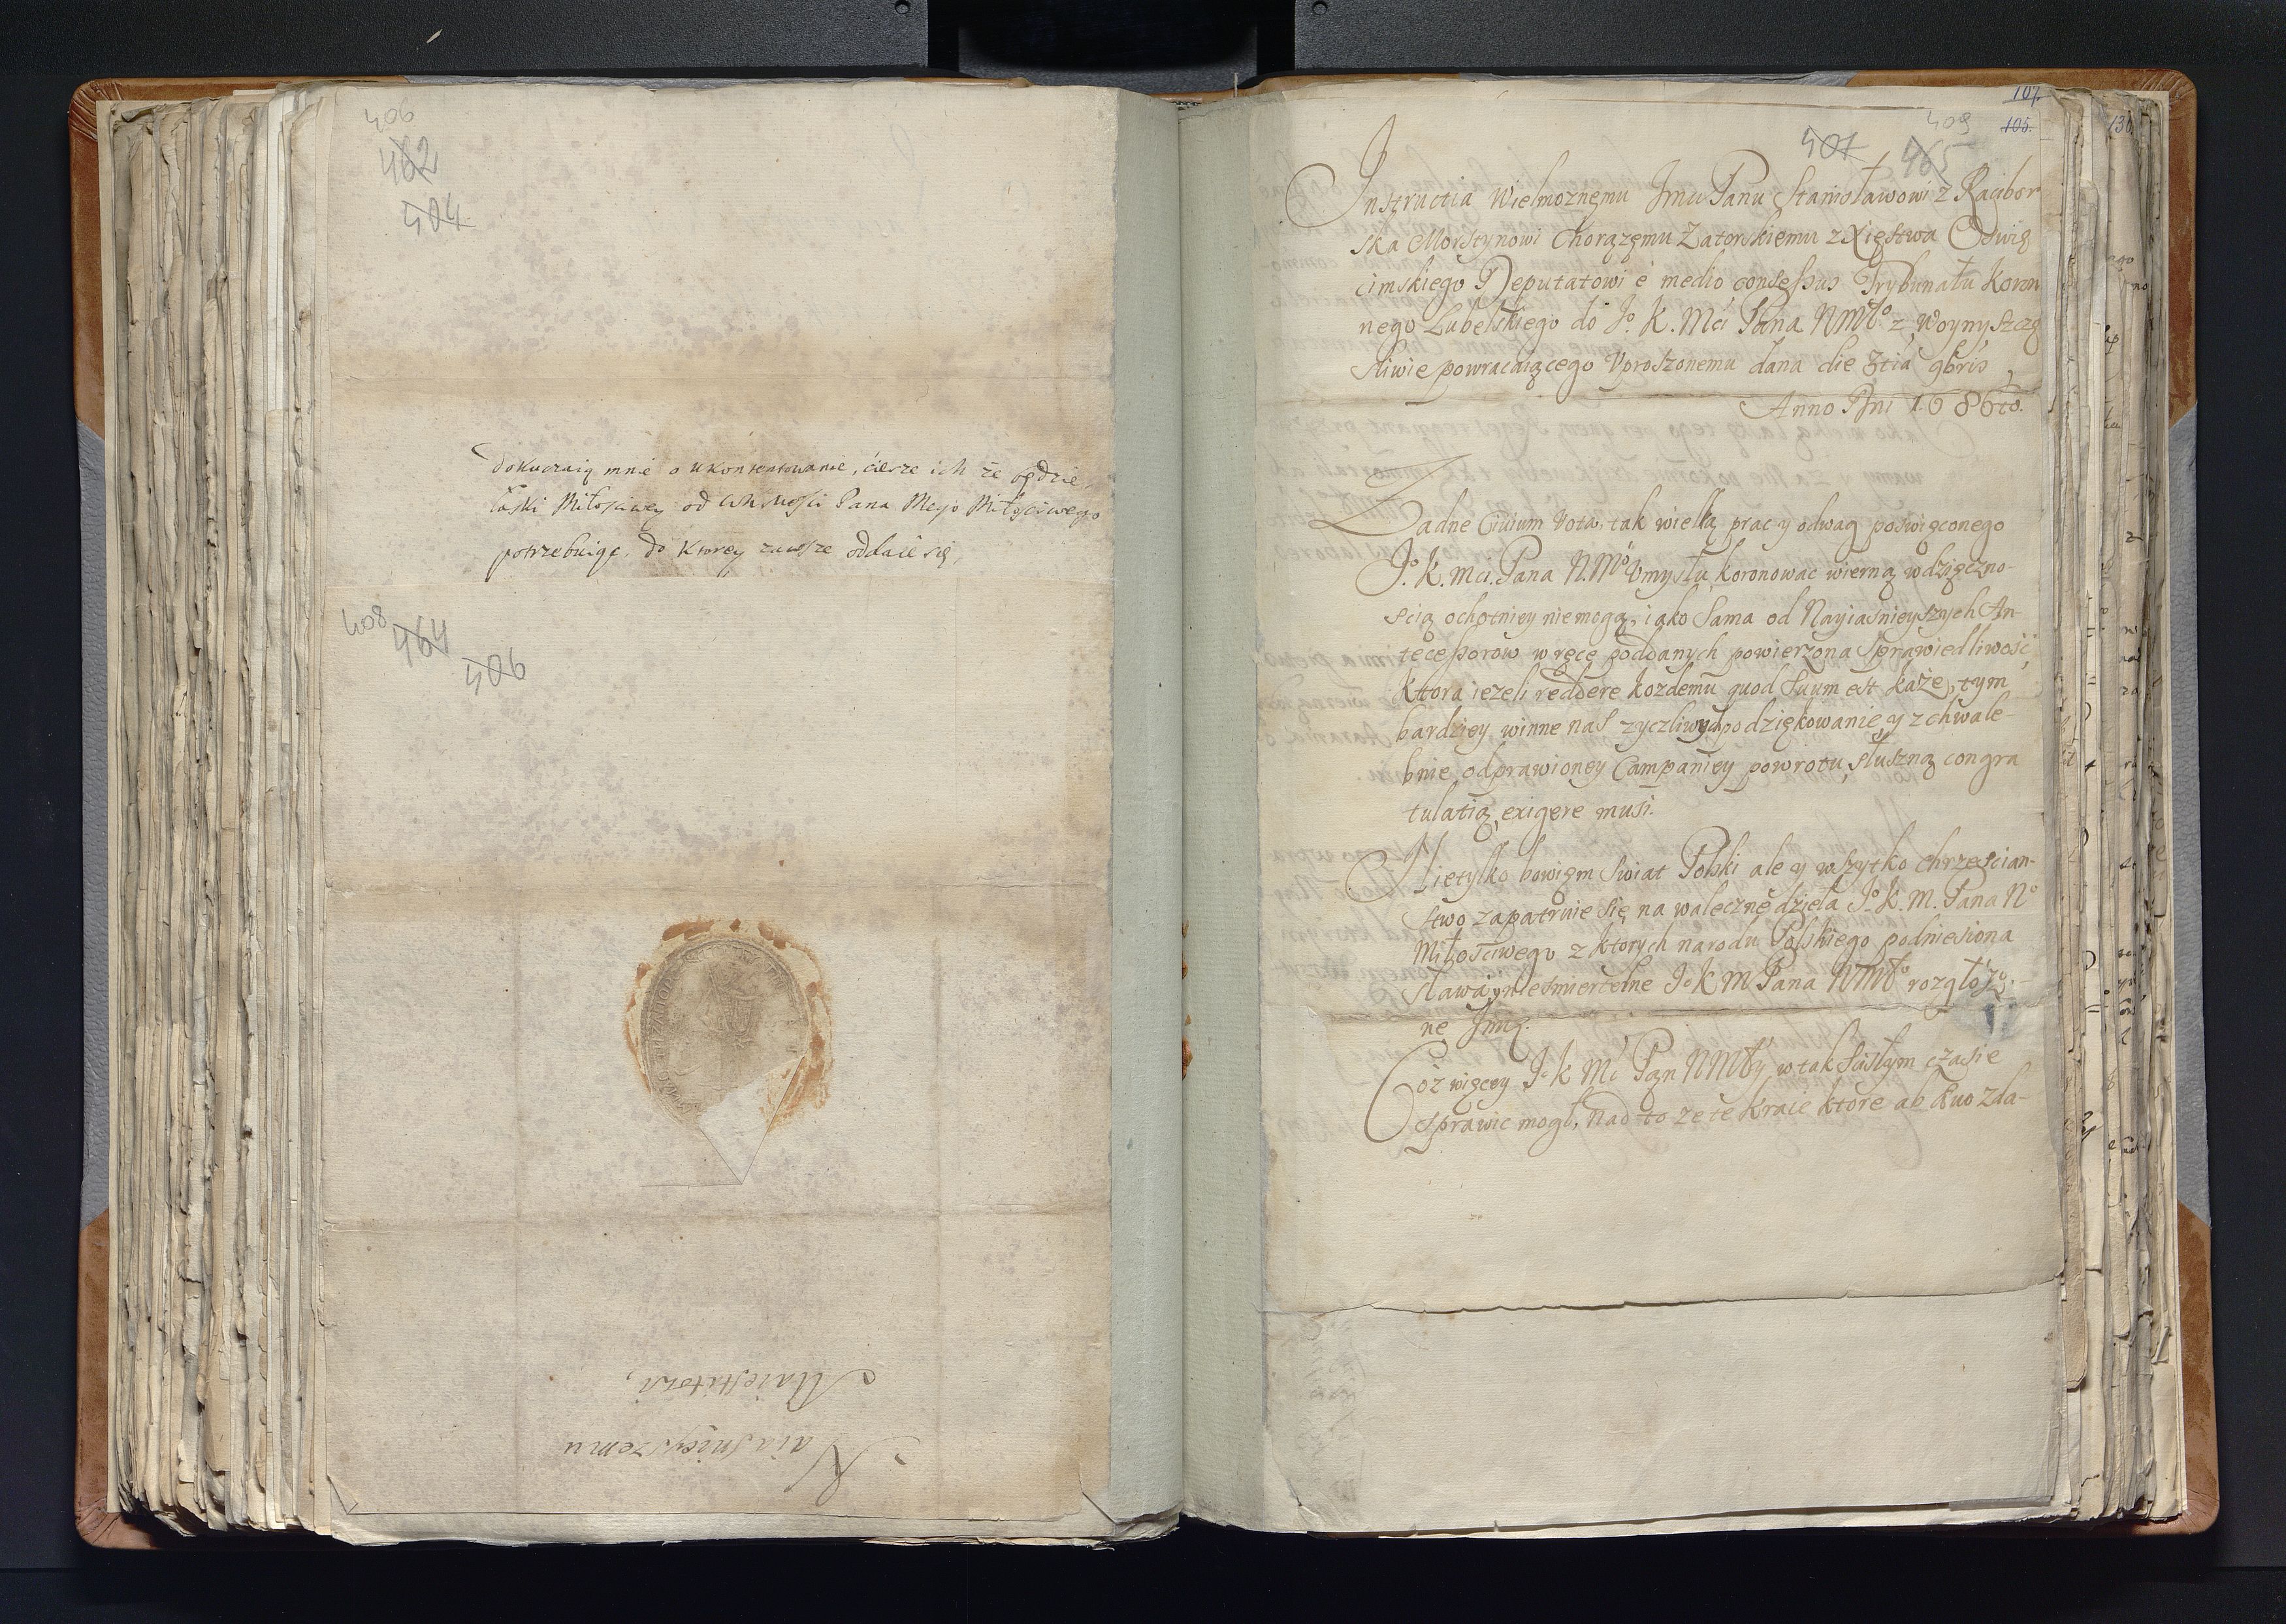 406
462
404
dokuczaią mnie o ukontentowanie, ciesze ich że będzie
łaski Miłościwey od WKMości Pana Mego Miłościwego
potrzebuiąc, do ktorey zawsze oddaie się,
408
464
406
Maiestatowi,
Naiaśnieyszemu
107.
105.
409
407
465
Instructia Wielmoznemu Jmu Panu Stanisławowi z Racibor
ska Morstynowi Chorązemu Zatorskiemu z Xięstwa Oswię
cimskiego Deputatowi è medio consessus Trybunału koron
nego Lubelskiego do Jo. K. Mci Pana NMło z Woyny szczę
sliwie powracaiącego Vproszonemu dana die 3tia 9bris
Anno Dni 1686to.
Zadne Ciuium Vota, tak wielką prac y odwag poswięconego
Jo. K. Mci. Pana N. Mo Vmysłu, koronowac wierną wdzięczno-
scią ochotniey niemogą, iako sama od Nayiasnieyszych An-
tecessorow w ręce poddanych powierzona Sprawiedliwość
Ktora iezeli reddere kozdemu quod suum est każe, tym
bardziey winne nas zyczliwych podziękowanie y z chwale-
bnie odprawioney Campaniey powrotu, słuszną congra
tulatią exigere musi.
Nietylko bowiem swiat Polski ale y wszytko chrzescian-
stwo zapatruie się na waleczne dzieła Jo. K. M. Pana No
Miłosciwego z ktorych narodu Polskiego podniesiona
sława, y niesmiertelne Jo K M Pana NMło rozgłoszo-
ne Jmię.
Coz więcey Jo K Mć Pan NMły w tak szasłym czasie
sprawic mogł, nad to ze te kraie ktore ab Æuo zda-